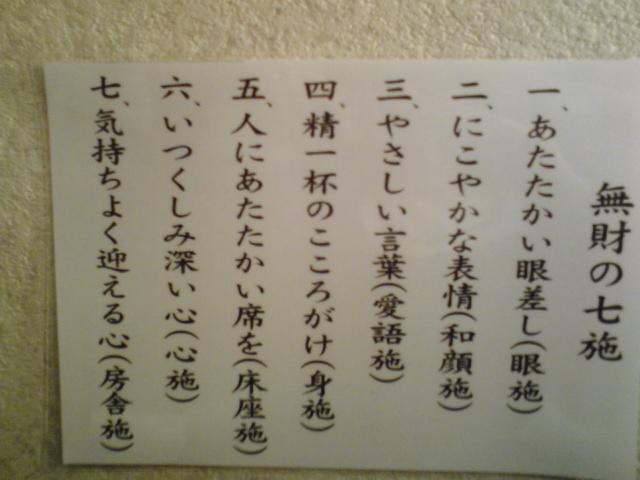 無財の七施
一、あたたかい眼差し(眼施)
二、にこやかな表情(和顔施)
三、やさしい言葉(愛語施)
四、精一杯のこころがけ(身施)
五、人にあたたかい席を(床座施)
六、いつくしみ深い心(心施)
七、気持ちよく迎える心(房舎施)